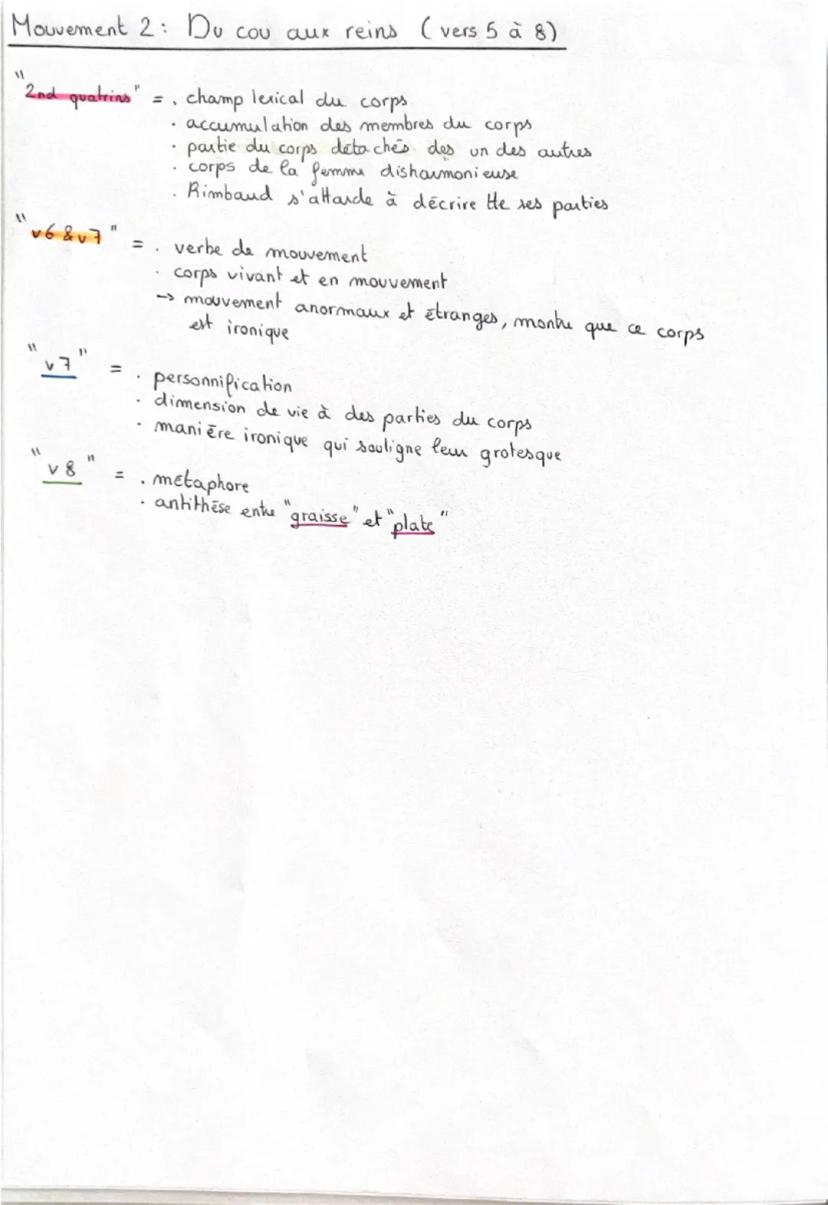 Mouvement 2 : Du cou aux reins ( vers 5 à 8)
"2nd quatrins" = . champ lexical du corps
. accumulation des membres du corps
. partie du corps détachés des un des autres
. corps de la femme disharmonieuse
. Rimbaud s'attarde à décrire tte ses parties
"v6 & v7" = . verbe de mouvement
. corps vivant et en mouvement
-> mouvement anormaux et étranges, montre que ce corps
est ironique
"v7" = . personnification
. dimension de vie à des parties du corps
. manière ironique qui souligne leur grotesque
"v8" = . métaphore
. antithèse entre "graisse" et "plate"